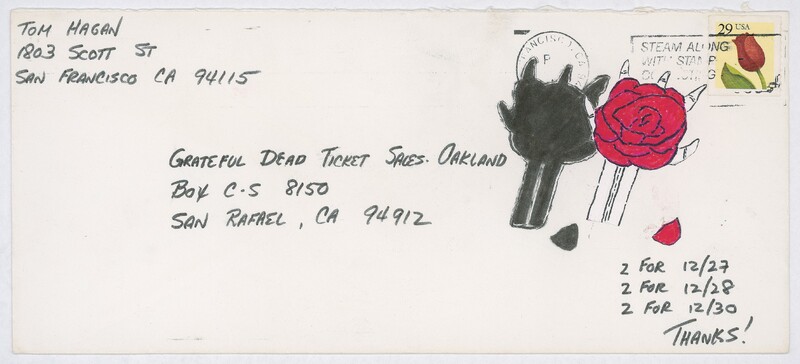 TOM HAGAN
1803 SCOTT ST
SAN FRANCISCO CA 94115
29 USA
STEAM ALONG
WITH STAMPS
GRATEFUL DEAD TICKET SALES. OAKLAND
BOX C-S 8150
SAN RAFAEL, CA 94912
2 FOR 12/27
2 FOR 12/28
2 FOR 12/30
THANKS!